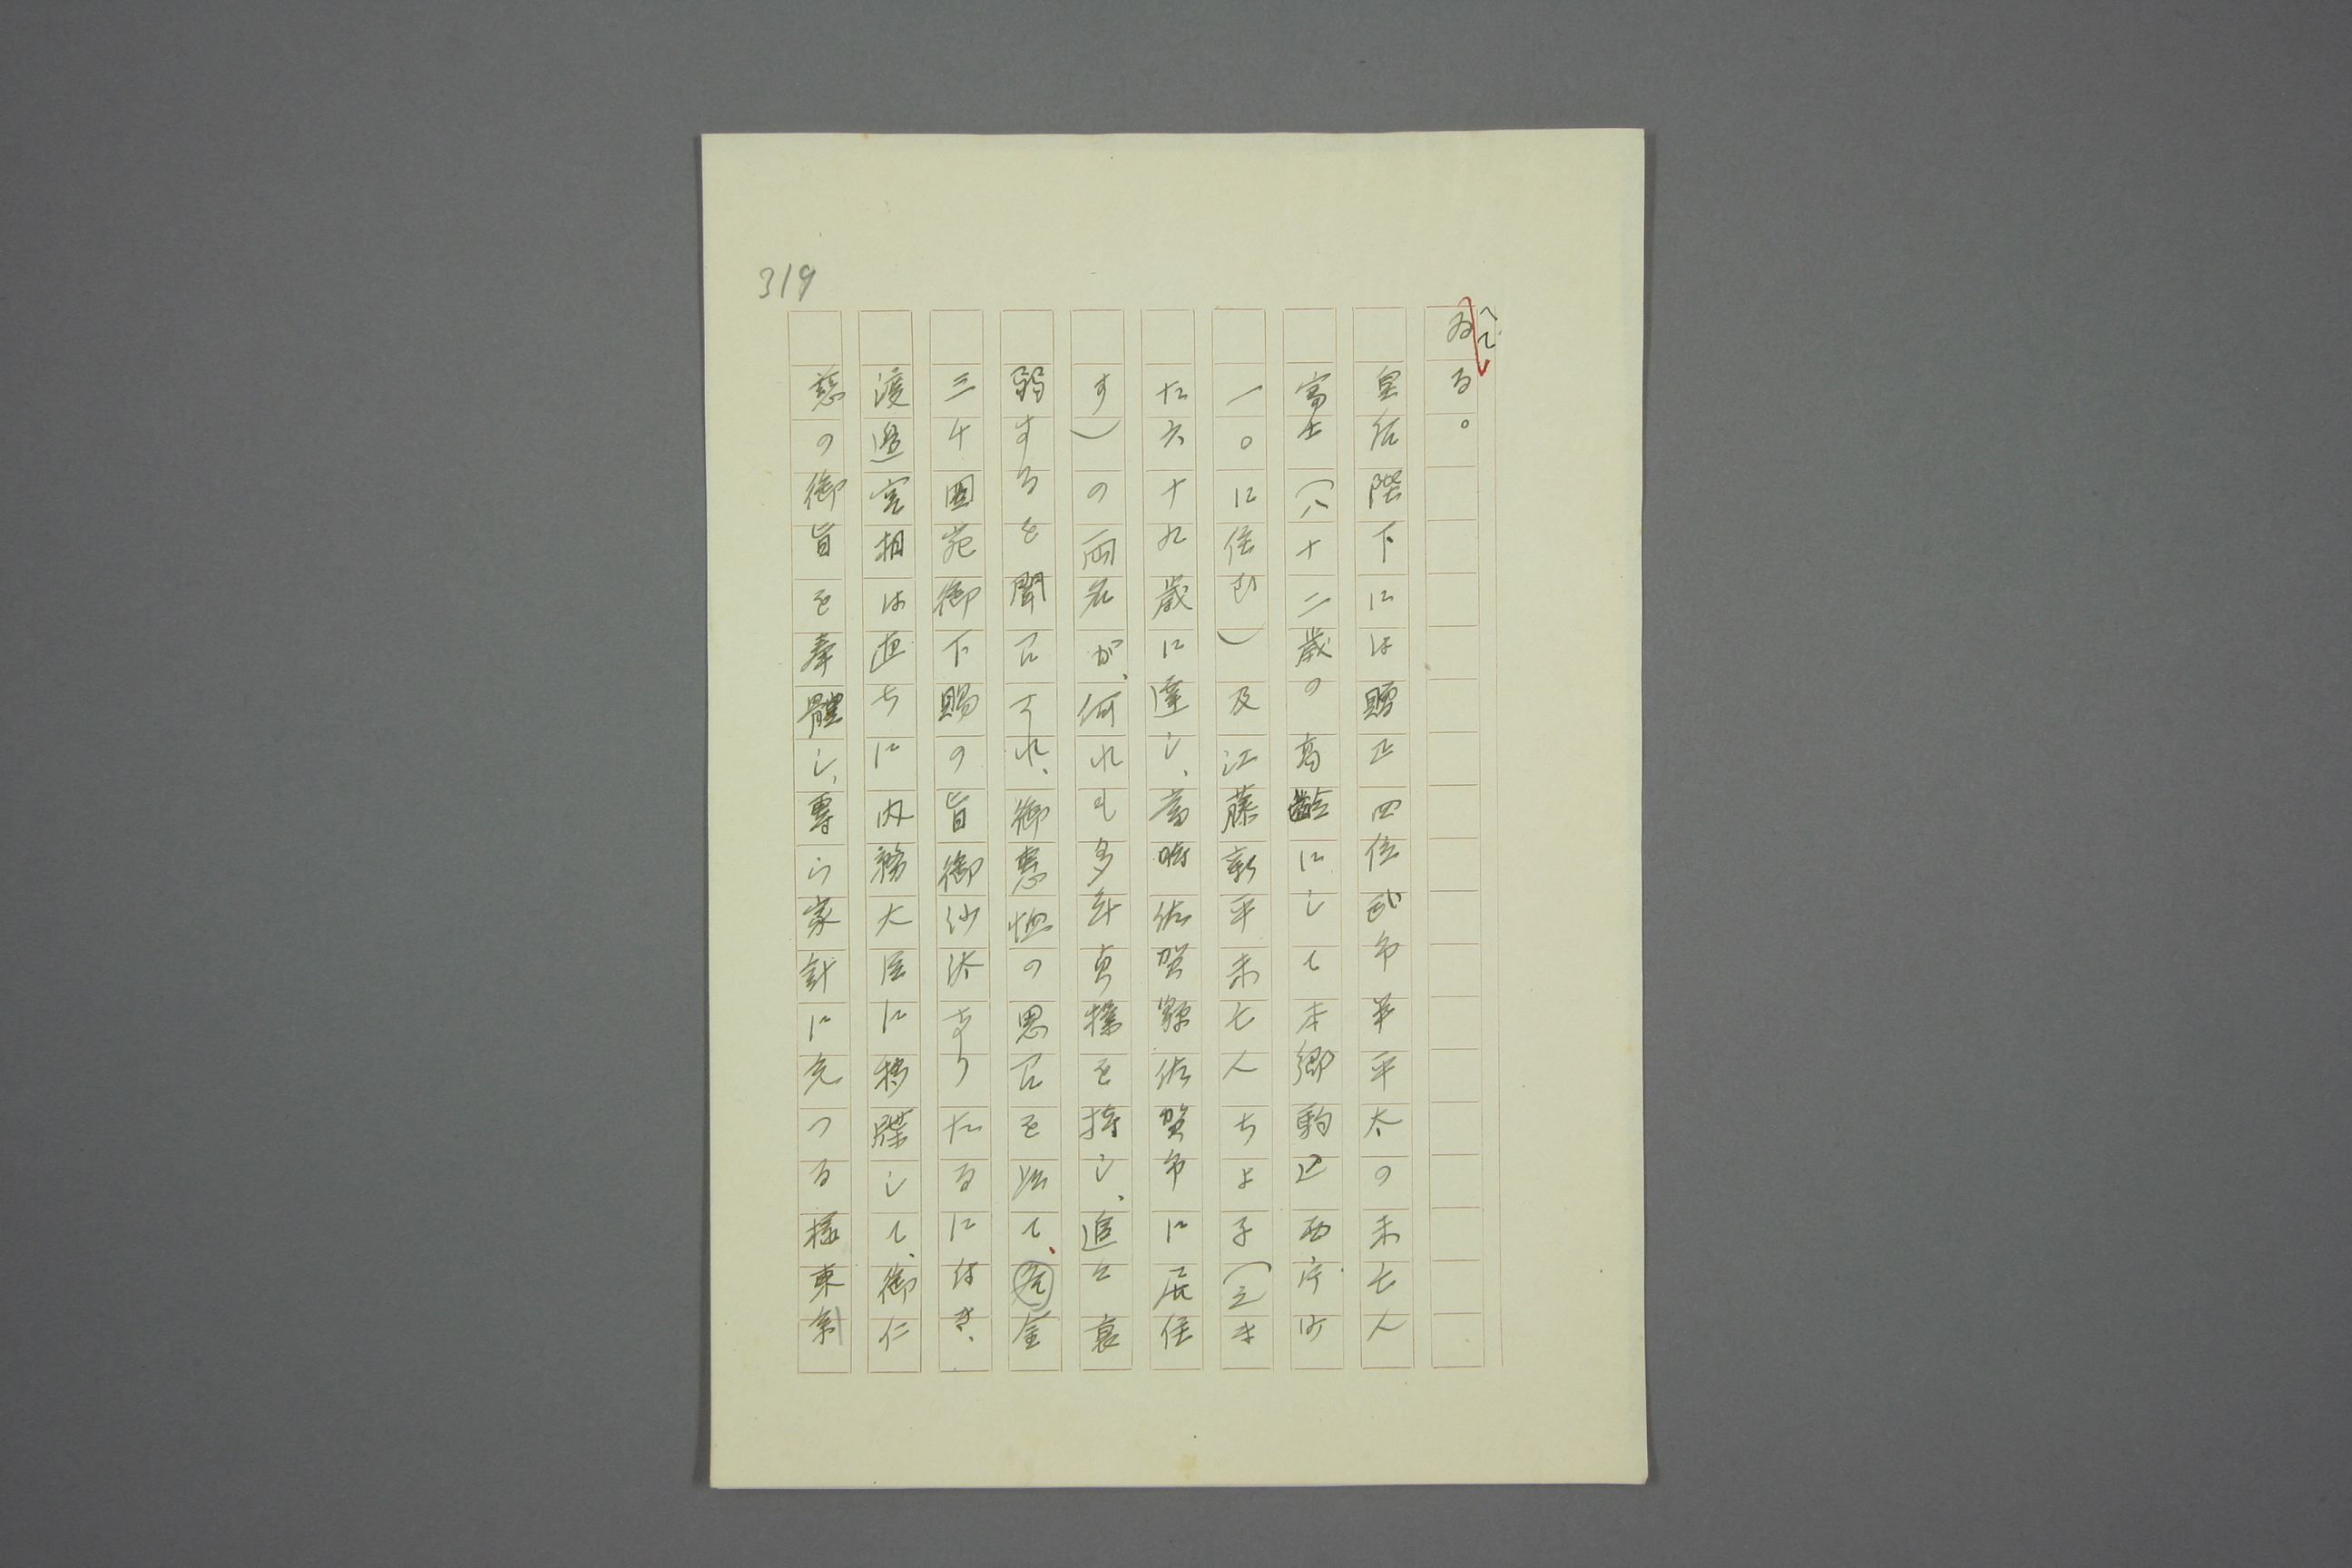 319
へて
ゐる。
皇后陛下には贈正四位武市半平太の未亡人
富士(八十二歳の高齢にして本郷駒込西片町
一〇に住む)及江藤新平未亡人ちよ子(之ま
た六十九歳に達し、当時佐賀縣佐賀市に居住
す)の両名が、何れも多年貞操を持し、追々衰
弱するを聞召され、御憲恤の思召を以て、各金
三千圓宛御下賜の旨御沙汰ありたるに付き、
渡邉宮相は直ちに内務大臣に移牒して、御仁
慈の御旨を奉體し、専ら家計に充つる様東京